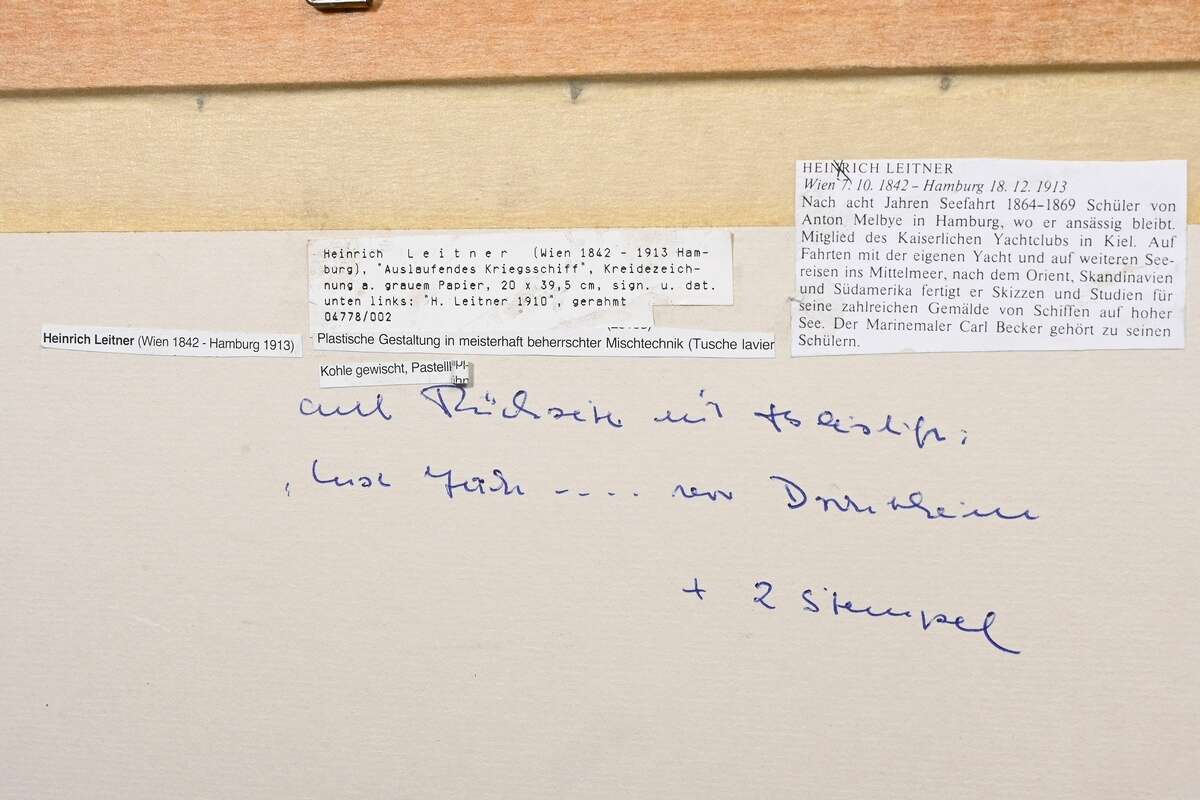 HEINRICH LEITNER
Wien 7. 10. 1842 – Hamburg 18. 12. 1913
Nach acht Jahren Seefahrt 1864–1869 Schüler von
Anton Melbye in Hamburg, wo er ansässig bleibt.
Mitglied des Kaiserlichen Yachtclubs in Kiel. Auf
Fahrten mit der eigenen Yacht und auf weiteren See-
reisen ins Mittelmeer, nach dem Orient, Skandinavien
und Südamerika fertigt er Skizzen und Studien für
seine zahlreichen Gemälde von Schiffen auf hoher
See. Der Marinemaler Carl Becker gehört zu seinen
Schülern.
Heinrich Leitner (Wien 1842 - 1913 Ham-
burg), "Auslaufendes Kriegsschiff", Kreidezeich-
nung a. grauem Papier, 20 x 39,5 cm, sign. u. dat.
unten links: "H. Leitner 1910", gerahmt
04778/002
Heinrich Leitner (Wien 1842 - Hamburg 1913)
Plastische Gestaltung in meisterhaft beherrschter Mischtechnik (Tusche lavier
Kohle gewischt, Pastell
auf Rückseite mit Bleistift:
+ 2 Stempel